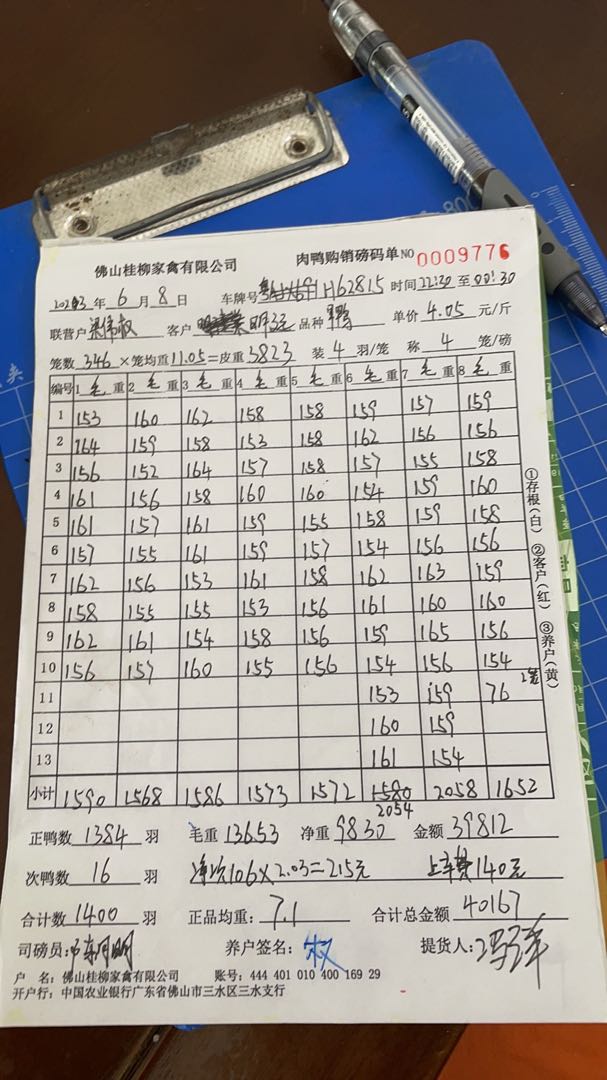 佛山桂柳家禽有限公司 肉鸭购销磅码单 NO 0009776
2023年6月8日 车牌号 H62815 时间 22:30 至 00:30
联营户 梁伟权 客户 品种 单价 4.05 元/斤
笼数 346 ×笼均重 11.05=皮重 3823 装 4 羽/笼 称 4 笼/磅
编号 1 毛重 2 毛重 3 毛重 4 毛重 5 毛重 6 毛重 7 毛重 8 毛重
1 153 160 162 158 158 159 157 159
2 164 159 158 153 158 162 156 156
3 156 152 164 157 158 157 155 158
4 161 156 158 160 160 154 159 160
5 161 157 161 159 155 158 159 158
6 157 155 161 159 157 154 156 156
7 162 156 153 161 158 162 163 159
8 158 155 155 153 156 161 160 160
9 162 161 154 158 156 159 165 156
10 156 157 160 155 156 154 156 154
11 153 159 76 2笼
12 160 159
13 161 154
小计 1590 1568 1586 1573 1572 1580 2058 1652
2054
①存根(白) ②客户(红) ③养户(黄)
正鸭数 1384 羽 毛重 13653 净重 9830 金额 39812
次鸭数 16 羽 净次106×2.03=215元 上车费140元
合计数 1400 羽 正品均重: 7.1 合计总金额 40167
司磅员: 养户签名: 权 提货人:
户 名: 佛山桂柳家禽有限公司 账号: 444 401 010 400 169 29
开户行: 中国农业银行广东省佛山市三水区三水支行